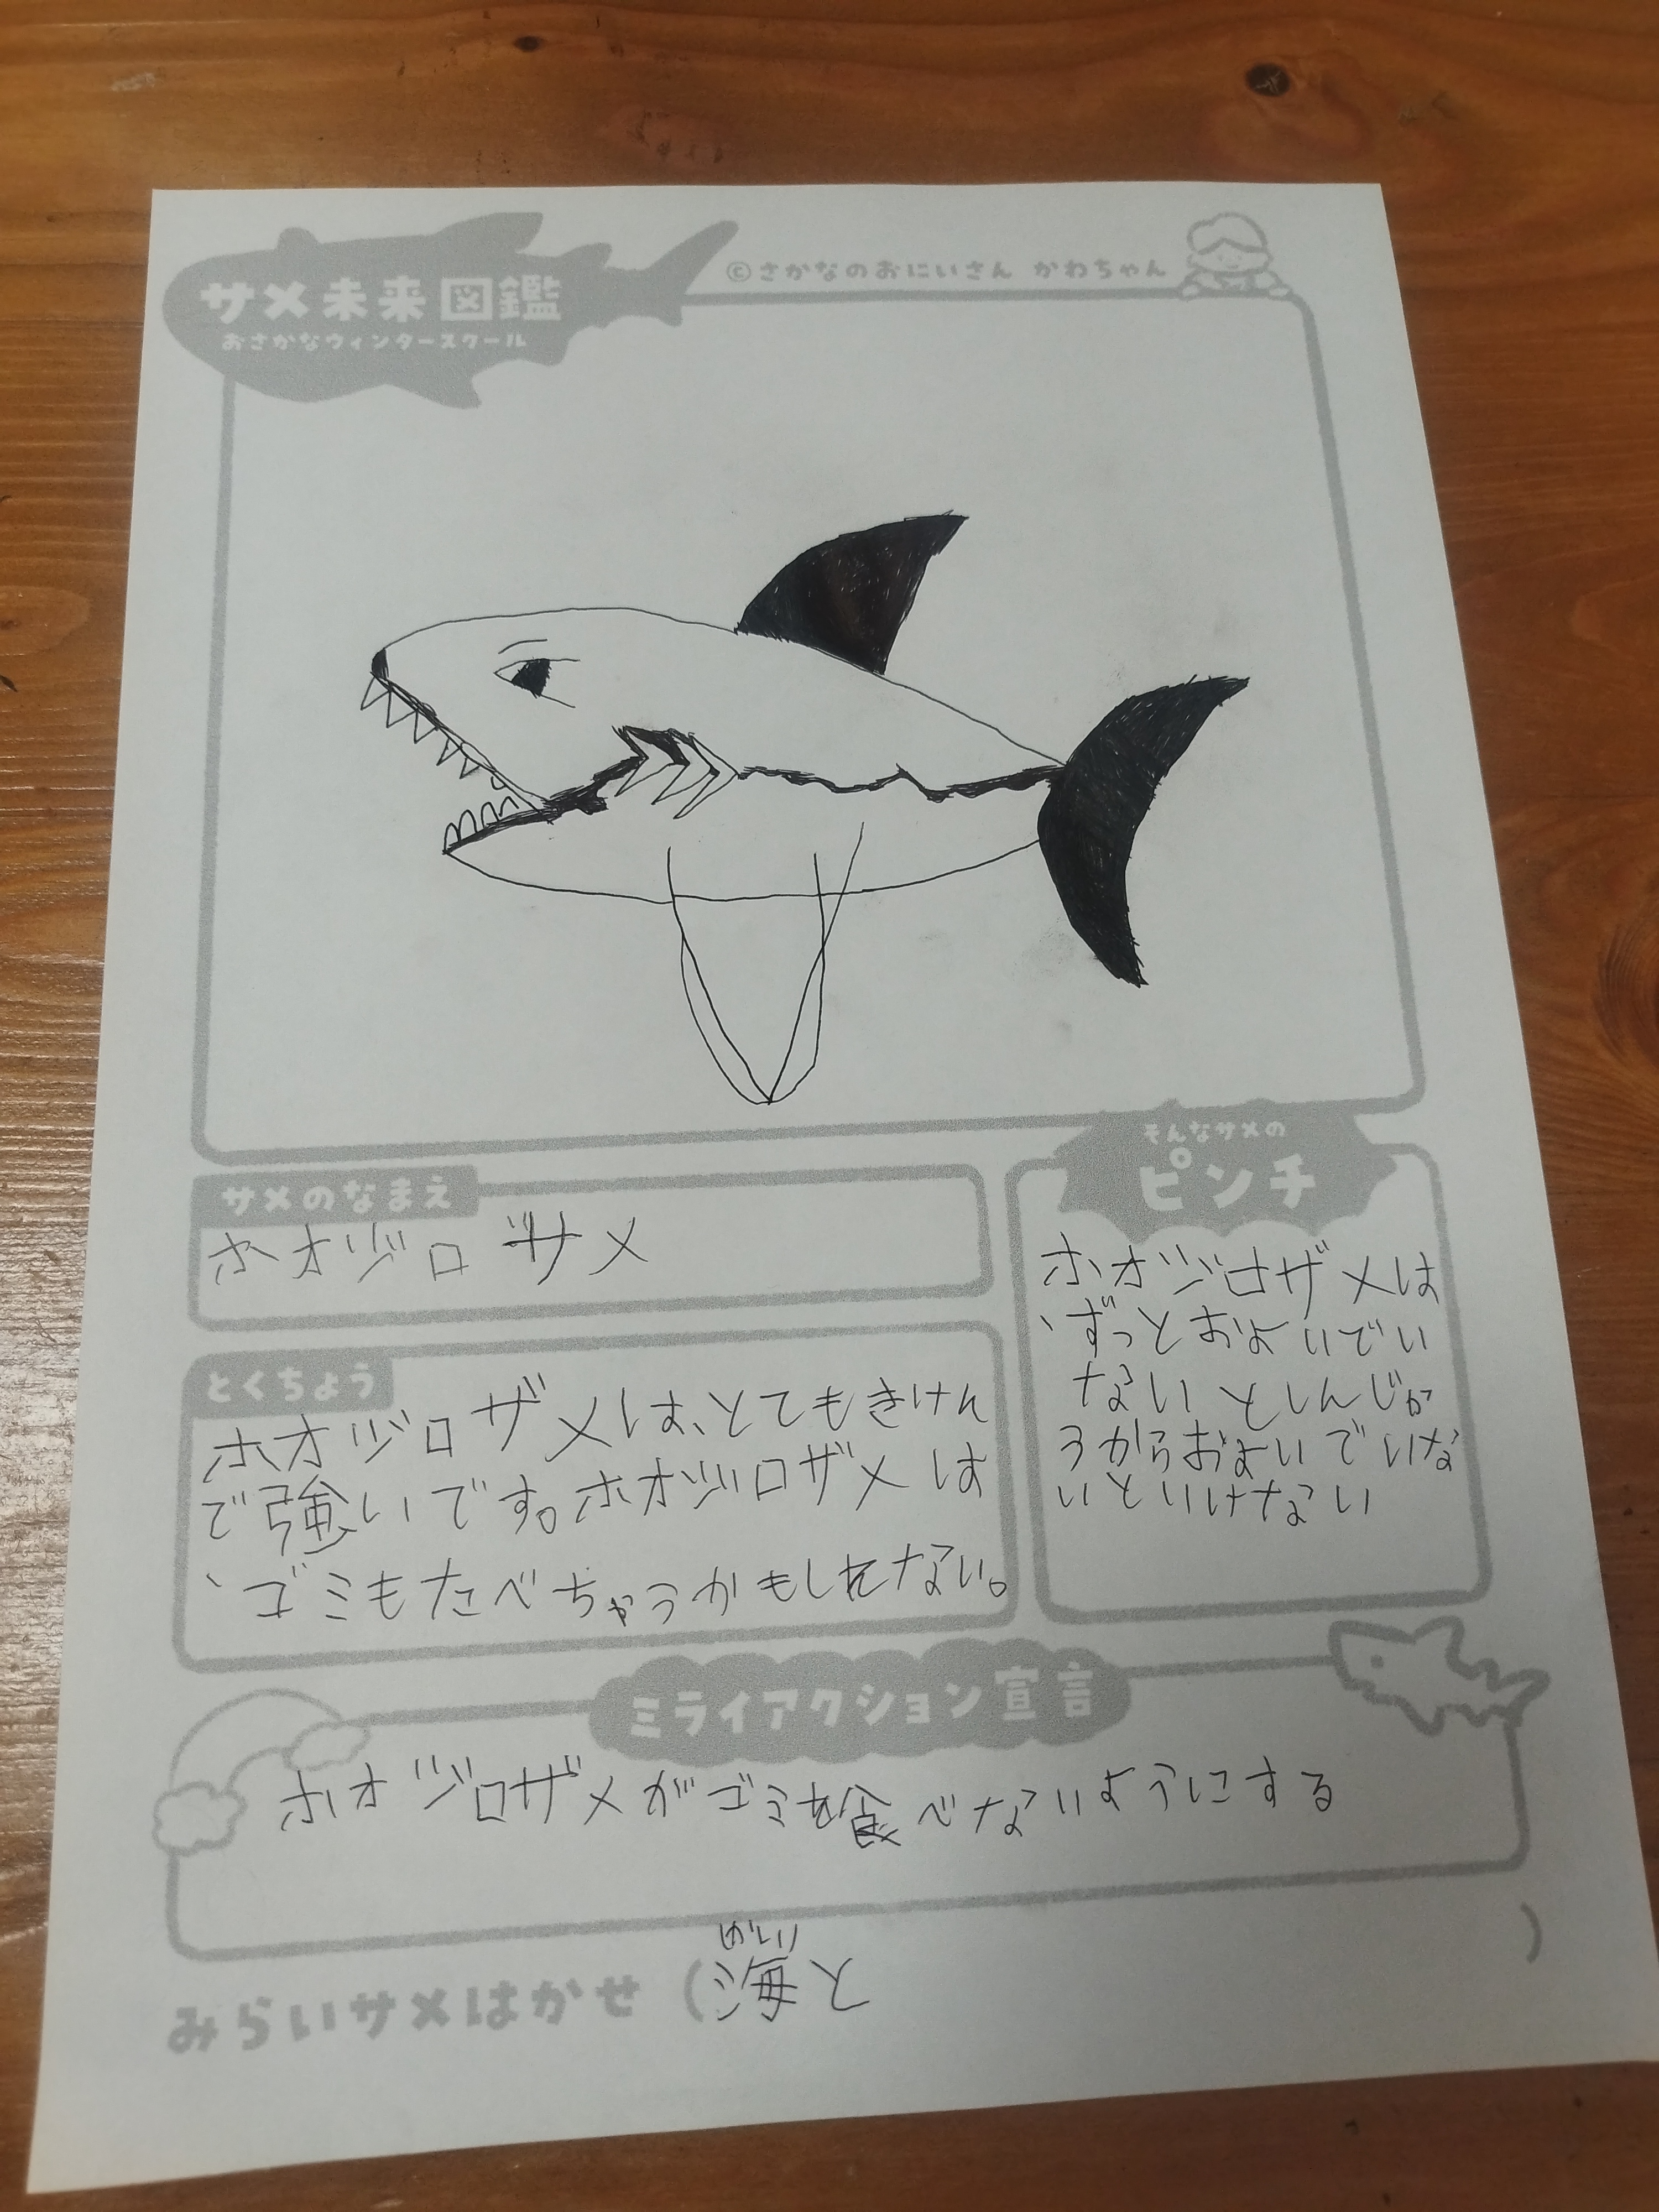 サメ未来図鑑
おさかなウィンタースクール
©さかなのおにいさん かわちゃん
サメのなまえ
ホオジロザメ
とくちょう
ホオジロザメは、とてもきけん
で強いです。ホオジロザメは
、ゴミもたべちゃうかもしれない。
そんなサメの
ピンチ
ホオジロザメは
、ずっとおよいでい
ないとしんじか
うからおよいでいな
いといけない
ミライアクション宣言
ホオジロザメがゴミを食べないようにする
かい
みらいサメはかせ (海と )